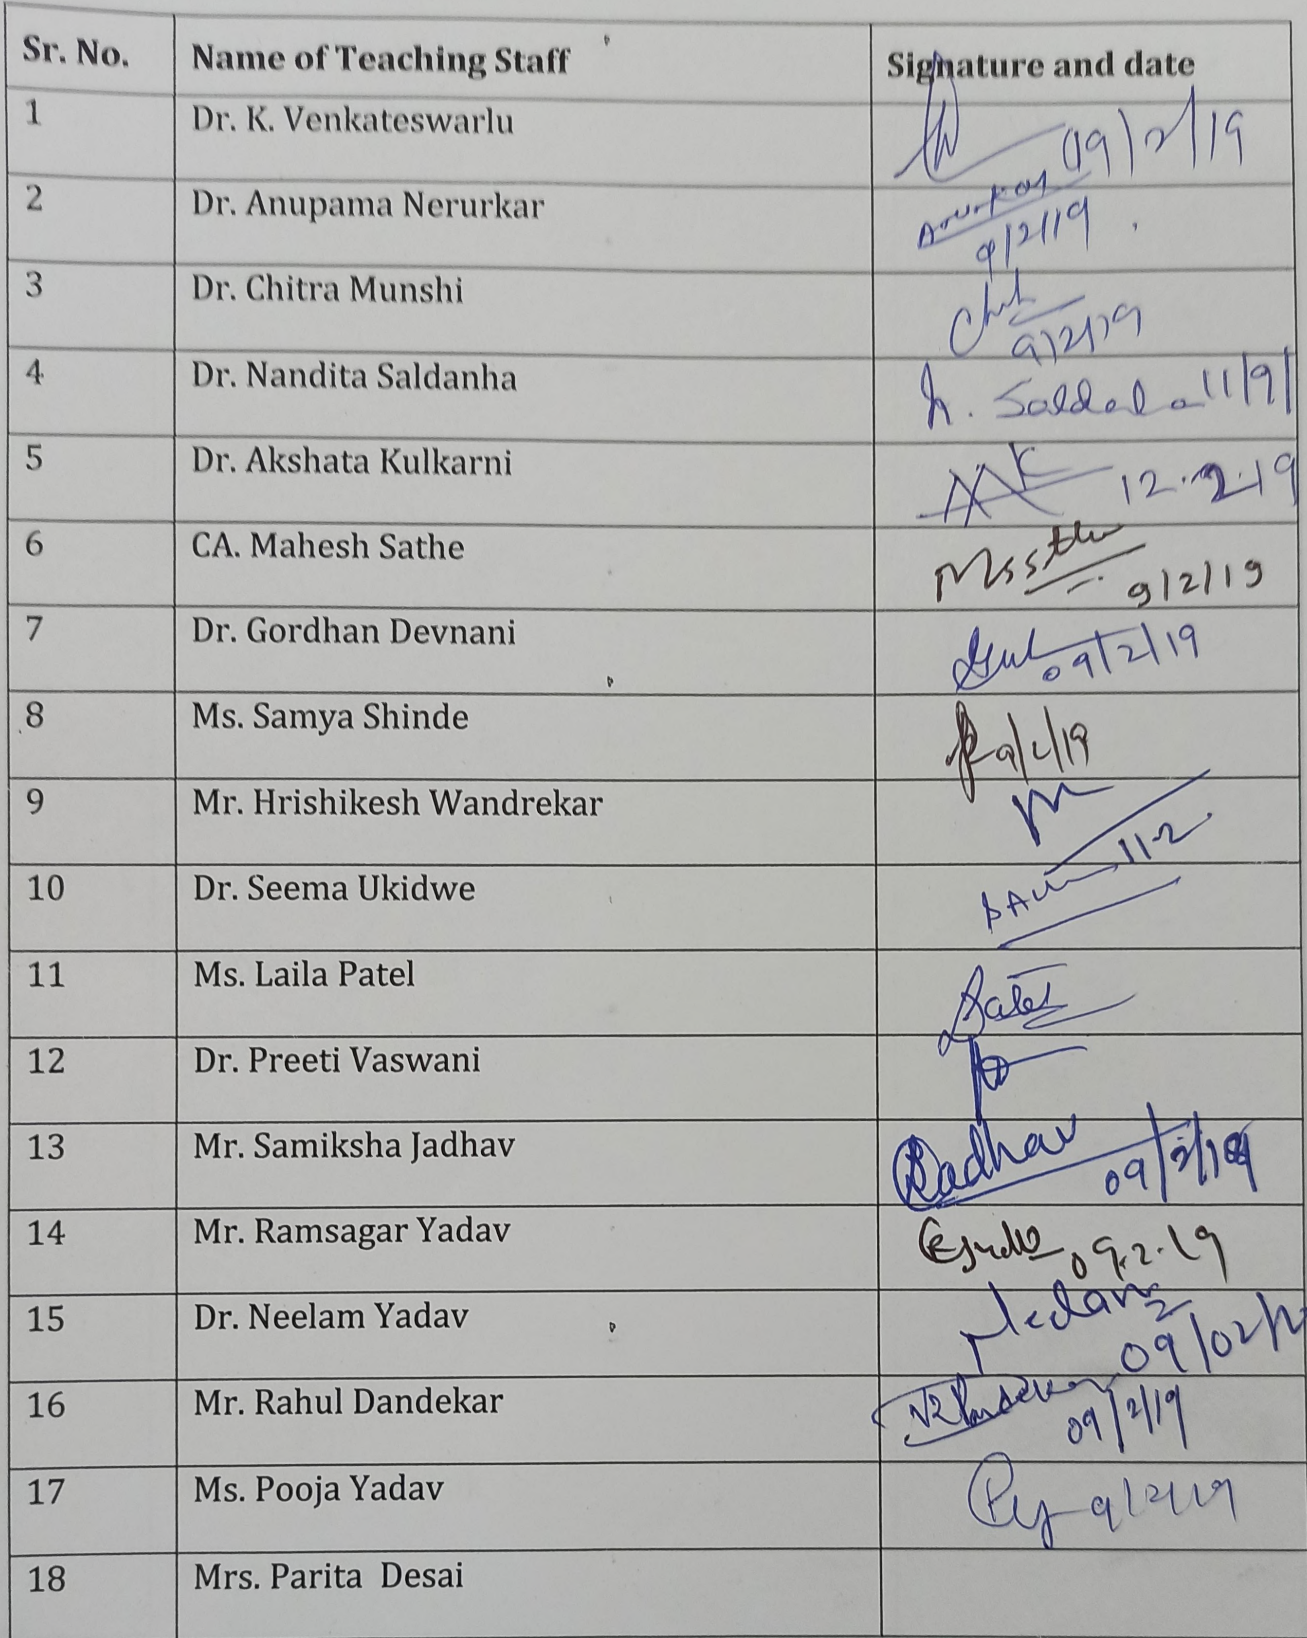 Sr. No. Name of Teaching Staff Signature and date
1 Dr. K. Venkateswarlu 09/2/19
2 Dr. Anupama Nerurkar
9/2/19
3 Dr. Chitra Munshi
9/2/19
4 Dr. Nandita Saldanha 11/9/
5 Dr. Akshata Kulkarni 12.2.19
6 CA. Mahesh Sathe
9/2/19
7 Dr. Gordhan Devnani 09/2/19
8 Ms. Samya Shinde 9/2/19
9 Mr. Hrishikesh Wandrekar
10 Dr. Seema Ukidwe 11-2
11 Ms. Laila Patel
12 Dr. Preeti Vaswani
13 Mr. Samiksha Jadhav 09/2/19
14 Mr. Ramsagar Yadav 09.2.19
15 Dr. Neelam Yadav
09/02/
16 Mr. Rahul Dandekar
09/2/19
17 Ms. Pooja Yadav 9/2/19
18 Mrs. Parita Desai